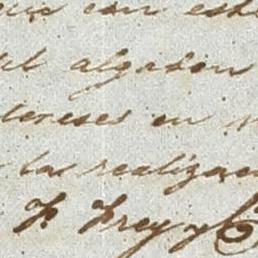 que con est
el algodon
tereses en
la realizac
F. Frey y C